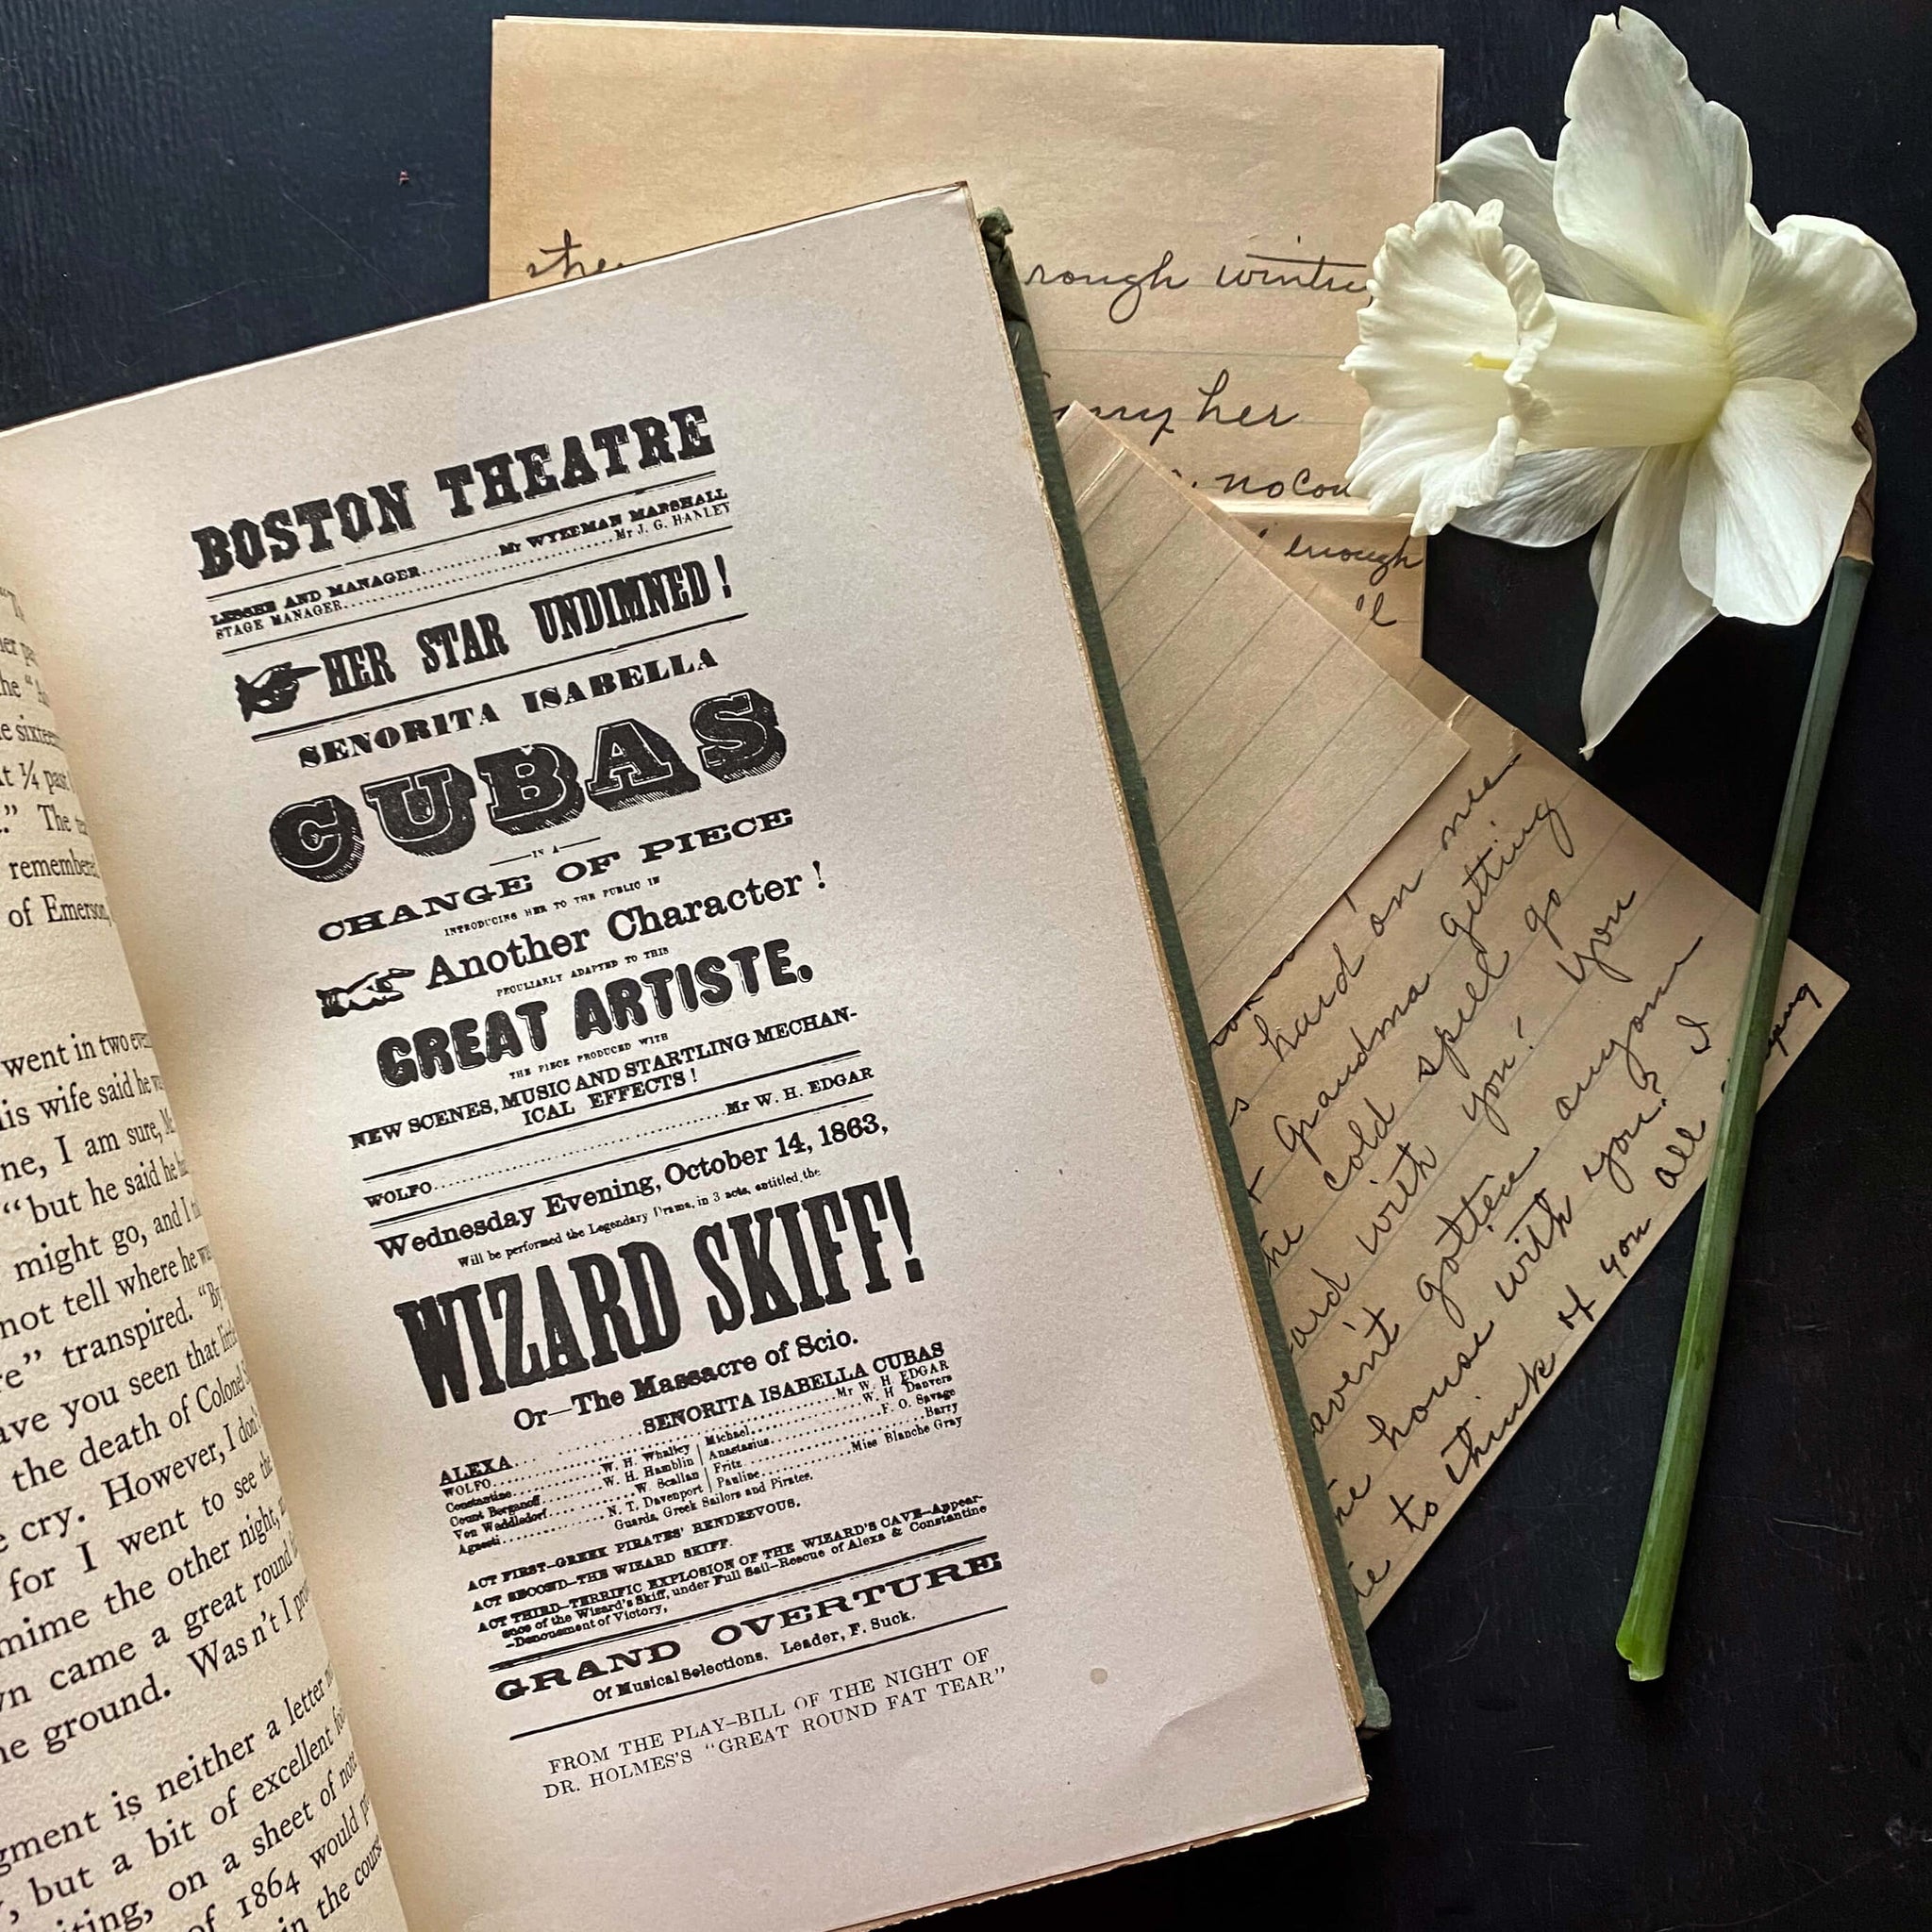 BOSTON THEATRE
LESSEE AND MANAGER..........Mr WYZEMAN MARSHALL
STAGE MANAGER..............................Mr J. G. HANLEY
HER STAR UNDIMNED!
SENORITA ISABELLA
CUBAS
IN A
CHANGE OF PIECE
INTRODUCING HER TO THE PUBLIC IN
Another Character!
PECULIARLY ADAPTED TO THIS
GREAT ARTISTE.
THE PIECE PRODUCED WITH
NEW SCENES, MUSIC AND STARTLING MECHAN-
ICAL EFFECTS!
WOLFO..............................Mr W. H. EDGAR
Wednesday Evening, October 14, 1863,
Will be performed the Legendary Drama, in 3 acts, entitled the
WIZARD SKIFF!
Or—The Massacre of Scio.
ALEXA..............SENORITA ISABELLA CUBAS
WOLFO..............................Mr W. H. EDGAR
Constantine..........W. H. Whalley | Michael..........W. H. Danvers
Count Berganoff..........W. H. Hamblin | Anastasius..........F. O. Savage
Von Waddledorf..........W. Scallan | Fritz..........Barry
Agnesti..........N. T. Davenport | Pauline..........Miss Blanche Gray
Guards, Greek Sailors and Pirates.
ACT FIRST—GREEK PIRATES' RENDEZVOUS.
ACT SECOND—THE WIZARD SKIFF.
ACT THIRD—TERRIFIC EXPLOSION OF THE WIZARD'S CAVE—Appear-
ance of the Wizard's Skiff, under Full Sail—Rescue of Alexa & Constantine
—Denouement of Victory,
GRAND OVERTURE
Of Musical Selections. Leader, F. Suck.
FROM THE PLAY-BILL OF THE NIGHT OF
DR. HOLMES'S "GREAT ROUND FAT TEAR"
the "
sixteen
At ¼ past
." The
remembered
of Emerson,
went in two
his wife said he
one, I am sure,
"but he said he
might go, and I
not tell where he
transpired. "By
have you seen that little
the death of Colonel
cry. However, I don't
for I went to see the
the other night,
came a great round
the ground. Wasn't I
is neither a letter
, but a bit of excellent
, on a sheet of note
of 1864 would
in the course
the
rough
my her
no
enough
'l
hard on me
Grandma getting
cold spell go
with you! you
gotten anyone
house with you? I
to think of you all